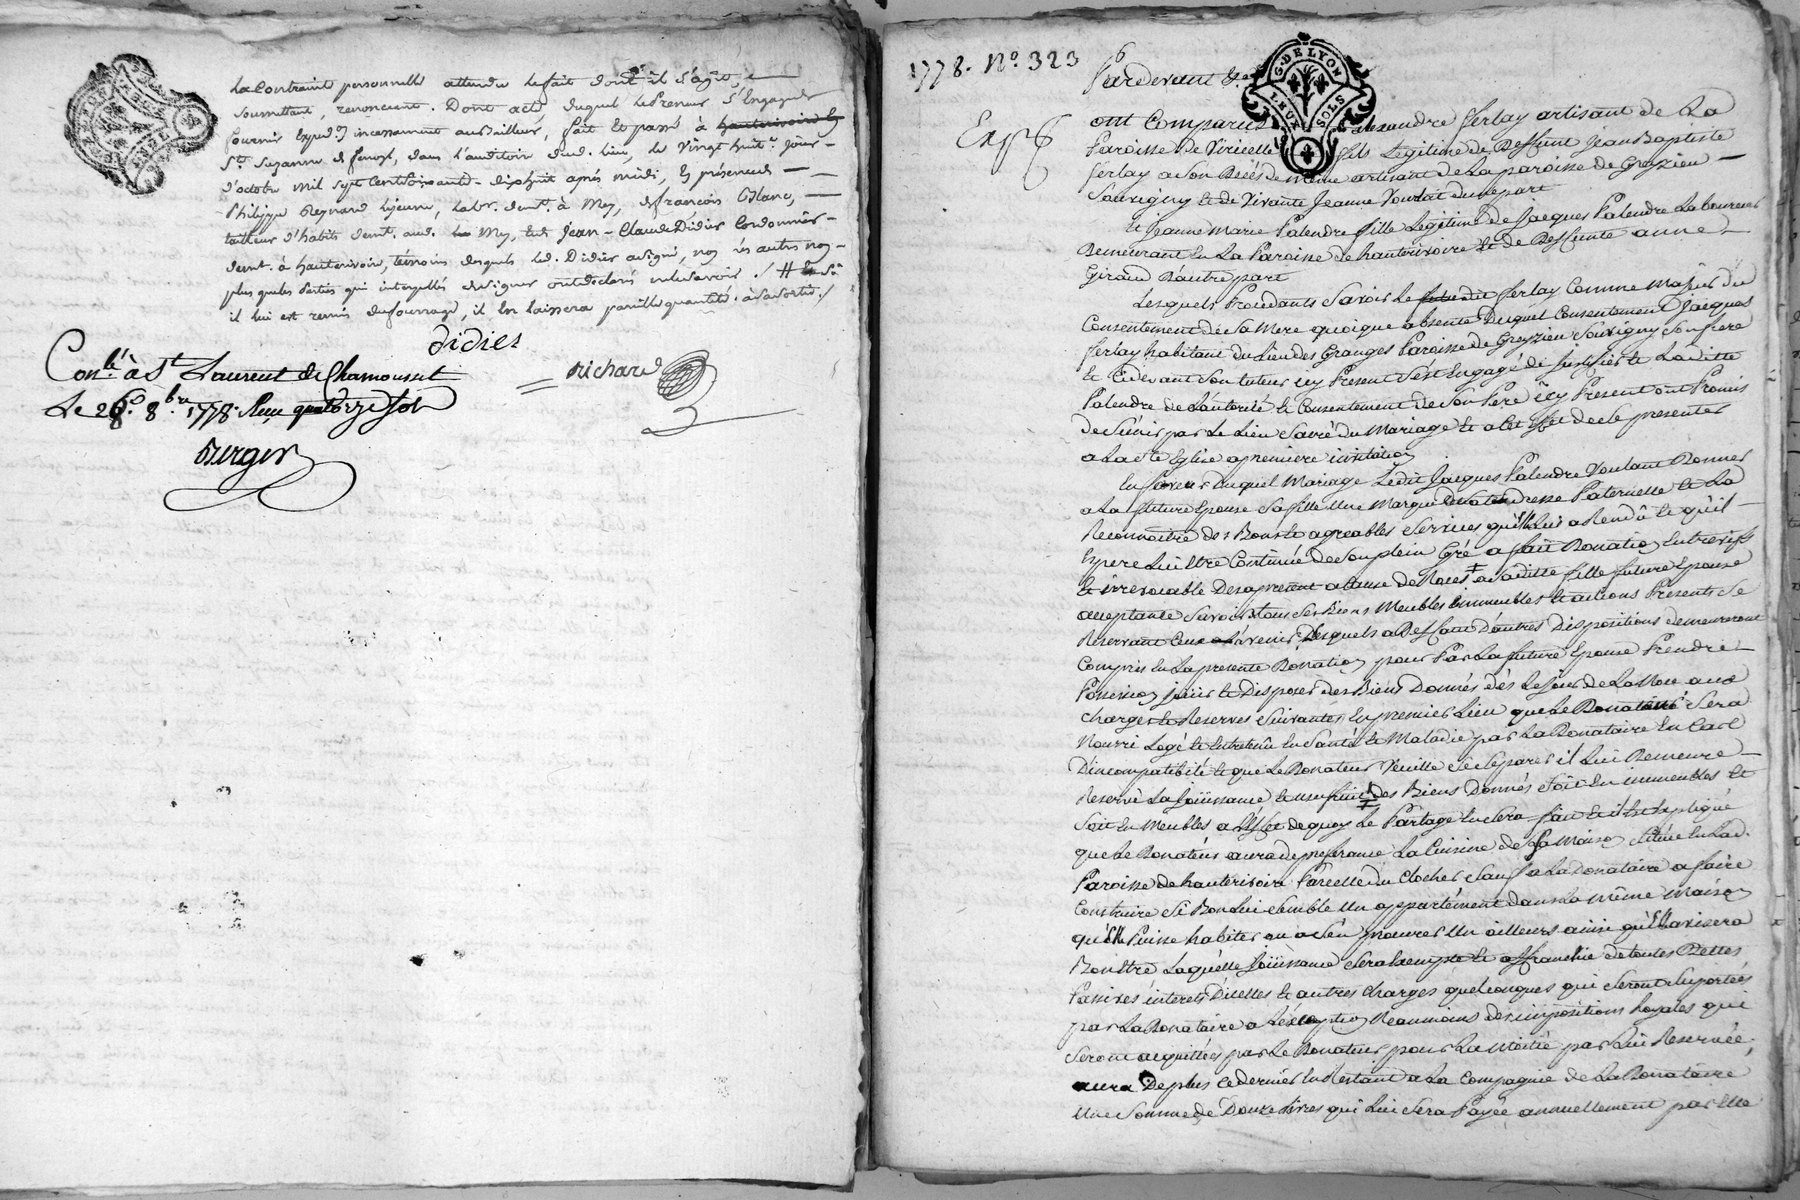 La Contrainte personnelle attendu le fait dont il s'agit,
soumettant, renonceant. Dont acte duquel le Preneur s'Engage de
fournir Exped.on incessamment au Bailleur, fait Et passé à hauterivoire Et
Ste. Suzanne de fenoyl, dans l'auditoire dud. lieu, le Vingt huit.e jour
d'octobre mil sept Cent soixante-dixhuit après midi, En présence de
Philippe Reynard le jeune, Labr. demt. à Mey, de françois Blanc,
tailleur d'habits demt. aud. Mey, Et de Jean-Claude Didier Cordonnier
demt. à hauterivoire, témoins desquels led. Didier a signé, non les autres non
plus que les Parties qui interpellés de signer ont déclaré ne le savoir ./. #
il lui est remis du fourrage, il En laissera pareille quantité à sa sortie ./.
didier
Richard
Con.lé à St Laurent de Chamousset
Le 28. 8bre 1778. Reçu quatorze sols
Burger
G. DE LYON
SOLS
1778. No. 323
Pardevant &a
Exp
ont Comparus alexandre ferlay artisant de La
Paroisse de Viricelle fils Legitime de Deffunt Jean Baptiste
ferlay a Son Décés de Même artisant de La paroisse de Grezieu
Souvigny et de Vivante Jeanne Vourlat D'une part
Et Jeanne Marie Palendre fille Legitime de Jacques Palendre Laboureur
Demeurant En La Paroisse de hauterivoire Et de Deffunte anne
Giraud D'autre part
Lesquels Procedants Savoir Le futur dit ferlay Comme Majeur du
Consentement de Sa Mere quoique absente Duquel Consentement Jacques
ferlay habitant du Lieu des Granges Paroisse de Grezieu Souvigny Son frere
Et Cidevant Son tuteur icy Present S'est Engagé de justifier Et Laditte
Palendre de L'autorité Et Consentement de Son Pere icy Present ont Promis
de S'unir par Le Lien Sacré du Mariage Et a Cet Effet de Se presenter
a La Ste Eglise a premiere invitation
En faveur duquel Mariage Ledit Jacques Palendre Voulant Donner
a La future Epouse Sa fille Une Marque de Sa tendresse Paternelle Et La
Reconnoitre des Bons Et agreables Services qu'Elle Lui a Rendû Et qu'il
Espere Lui Etre Continué de Son plein Gré a fait Donation Entrevifs
Et irrevocable Desapresent a Cause de Noces a Saditte fille future Epouse
acceptante Savoir Tous Ses Biens Meubles immeubles Et actions Presents Se
Reservant Ceux a Venir, Desquels a Deffaut D'autres Dispositions demeureront
Compris En La presente Donation pour Par La future Epouse Prendre
Possession jouir Et Disposer des Biens Donnés dès Le Jour de La Noce aux
charges Et Reserves Suivantes En premier Lieu que Le Donateur Sera
Nourri Logé Et Entretenû En Santé Et Maladie par La Donataire En Cas
D'incompatibilité Et que Le Donateur Veuille Se Separer il Lui Demeure
Reservé La Joüissance Et usufruit des Biens Donnés Soit En immeubles Et
Soit En Meubles a L'Effet de quoy Le Partage En Sera fait Et il Est Expliqué
que Le Donateur aura de preferance La Cuisine de Sa Maison Située En Lad.
Paroisse de hauterivoire Parcelle du Clocher Sauf a La Donataire a faire
Construire Si Bon Lui Semble Un appartement dans La même Maison
qu'Elle Puisse habiter ou a S'en procurer Un ailleurs ainsi qu'Elle avisera
Bon Etre Laquelle Joüissance Sera Exempte Et affranchie de toutes Dettes
Passives interets D'icelles Et autres charges quelconques qui Seront Suportées
par La Donataire a L'éxception Neanmoins des impositions Royales qui
Seront acquittées par Le Donateur pour La Moitié par Lui Reservée,
aura De plus ce dernier En Restant a La Compagnie de La Donataire
Une Somme de Douze livres qui Lui Sera Payée annuellement par Elle